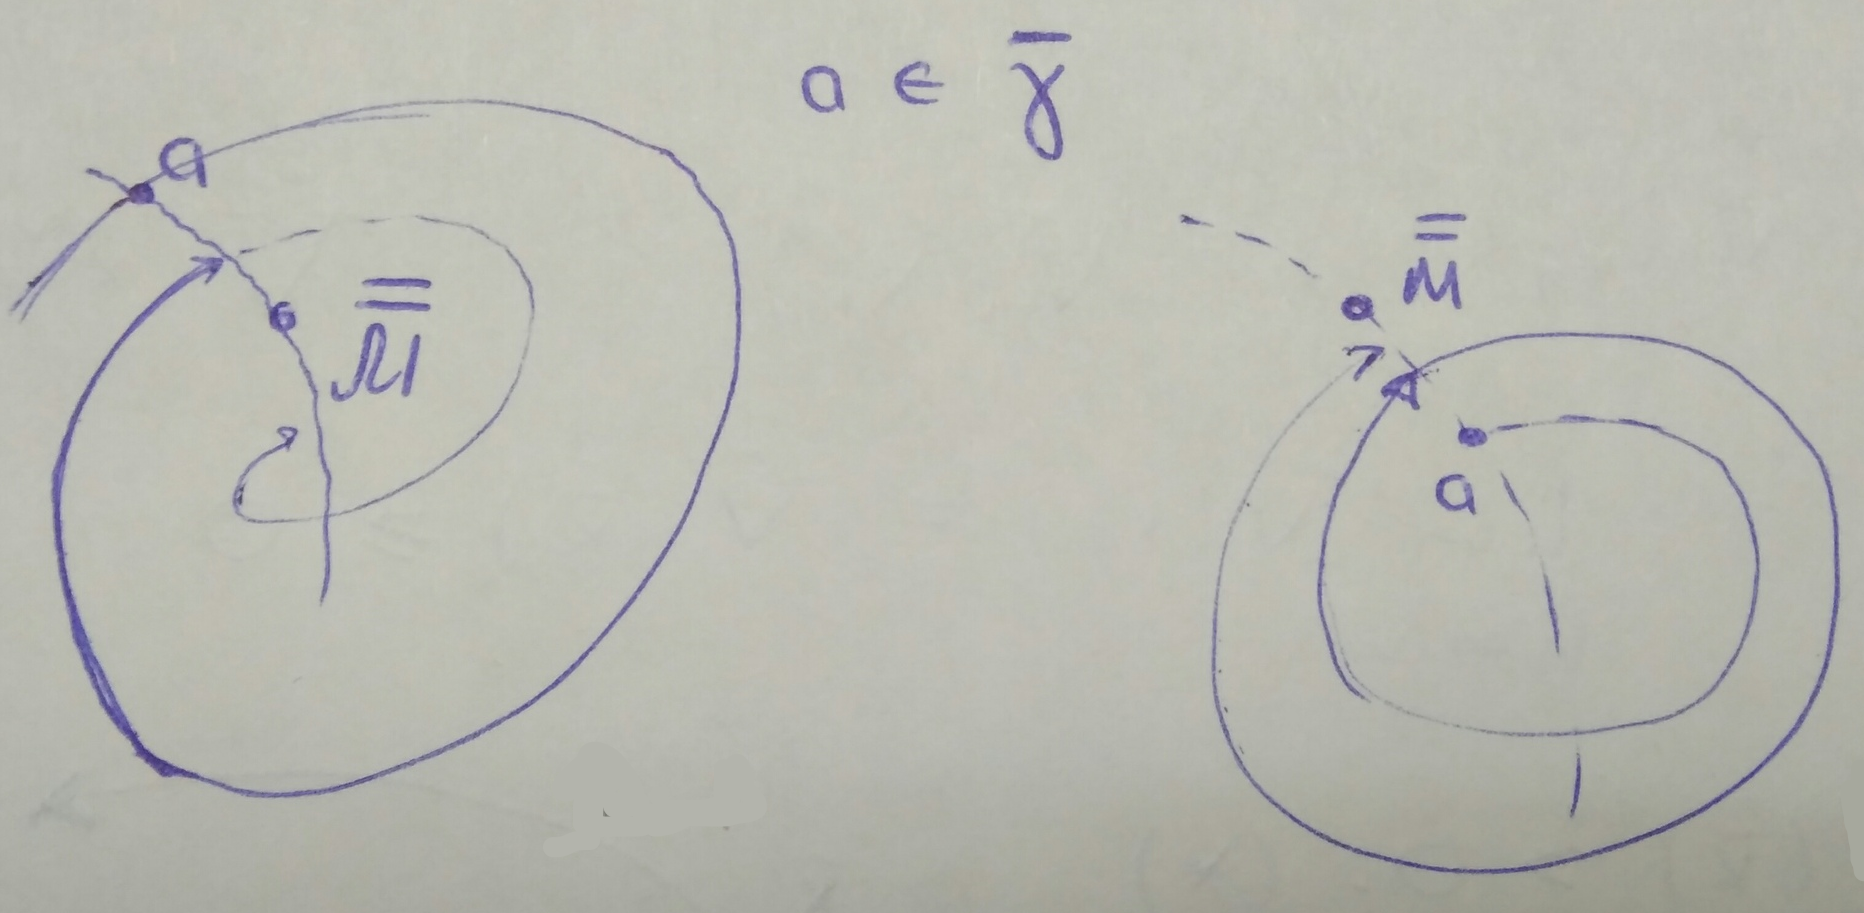 a ∈ γ̅
a
M̿
M̿
a